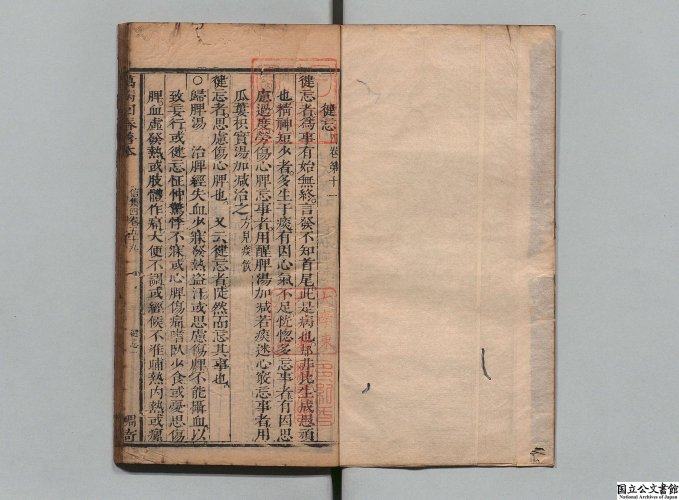 健忘 四卷第十一
健忘者爲事有始無終言發不知首尾此是病也却非比生成愚頑
也精神短少者多生于痰有因心氣不足恍惚多忘事者有因思
慮過度勞傷心脾忘事者用醒脾湯加減若痰迷心竅忘事者用
瓜蔞枳實湯加減治之 方見痰飲
健忘者思慮傷心脾也 又云健忘者陡然而忘其事也
○歸脾湯 治脾經失血少寐發熱盜汗或思慮傷脾不能攝血以
致妄行或健忘怔忡驚悸不寐或心脾傷痛嗜臥少食或憂思傷
脾血虛發熱或肢體作痛大便不調或經候不准晡熱內熱或瘰
萬病回春善本
健忘
國立公文書館
National Archives of Japan